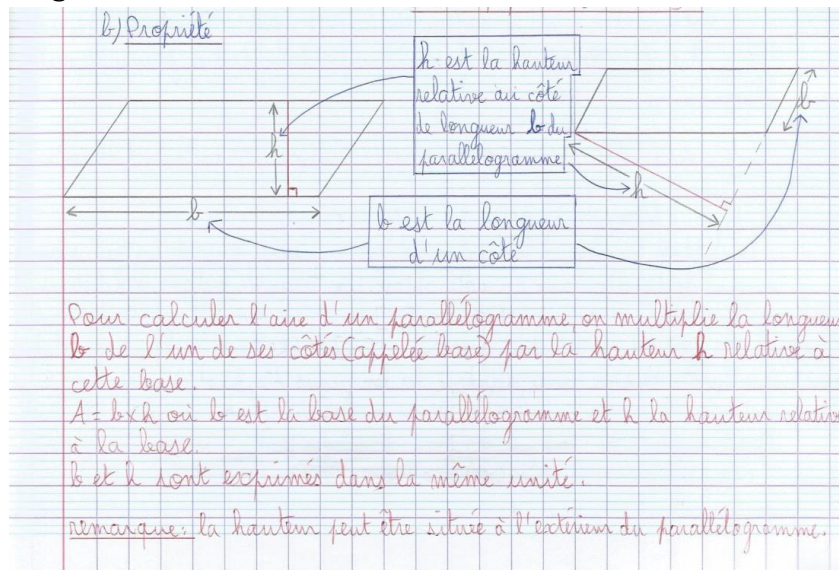 b) Propriété
h est la hauteur
relative au côté
de longueur b du
parallélogramme
h
b
b
h
b est la longueur
d'un côté
Pour calculer l'aire d'un parallélogramme, on multiplie la longueur
b de l'un de ses côtés (appelée base) par la hauteur h relative à
cette base.
A = b x h où b est la base du parallélogramme et h la hauteur relative
à la base.
b et h sont exprimés dans la même unité.
remarque: la hauteur peut être située à l'extérieur du parallélogramme.